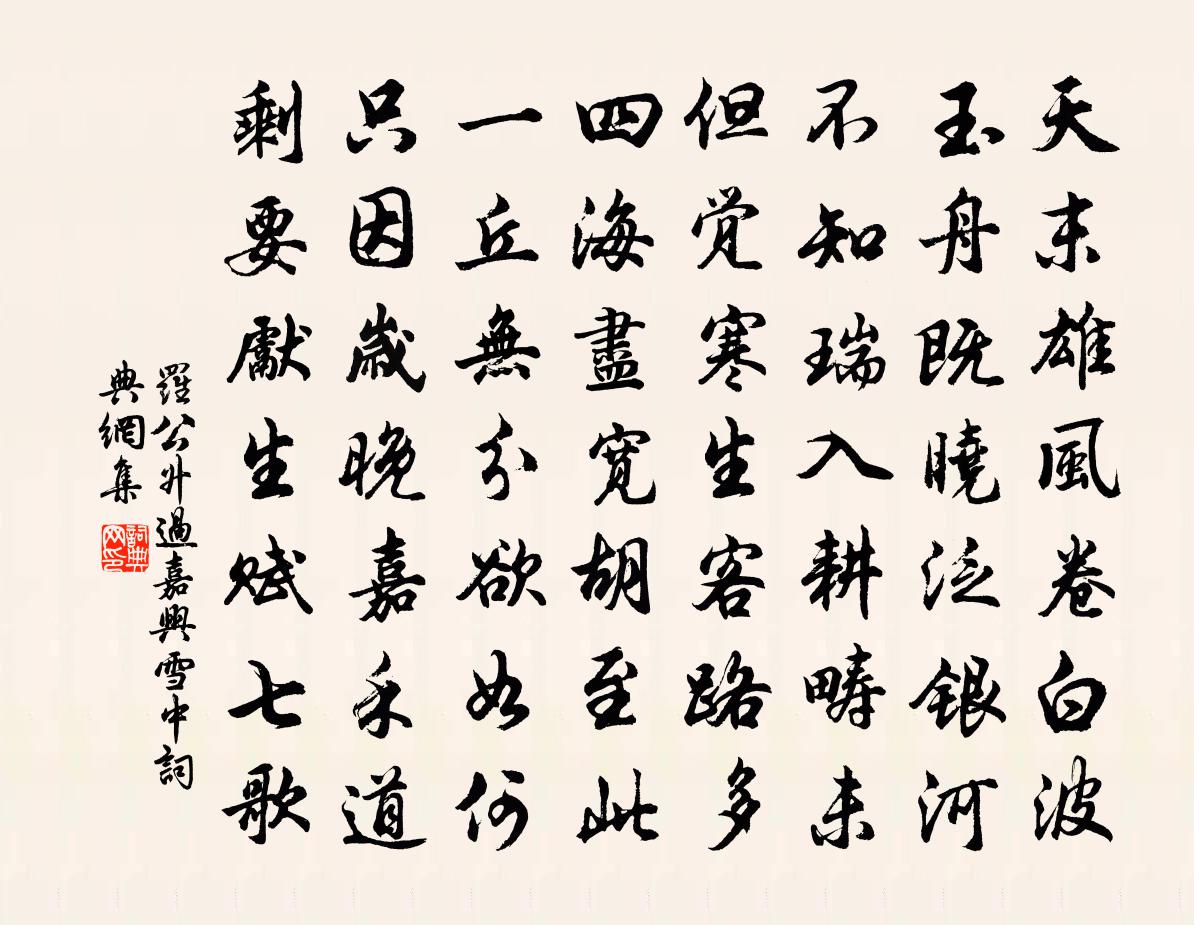 天末雄風卷白波
玉舟既曉泛銀河
不知瑞入耕疇未
但覚寒生客路多
四海盡寬胡至此
一丘無分欲如何
只因歲晚嘉禾道
剩要獻生賦七歌
羅公升過嘉興雪中詞
典網集
詞典
网印